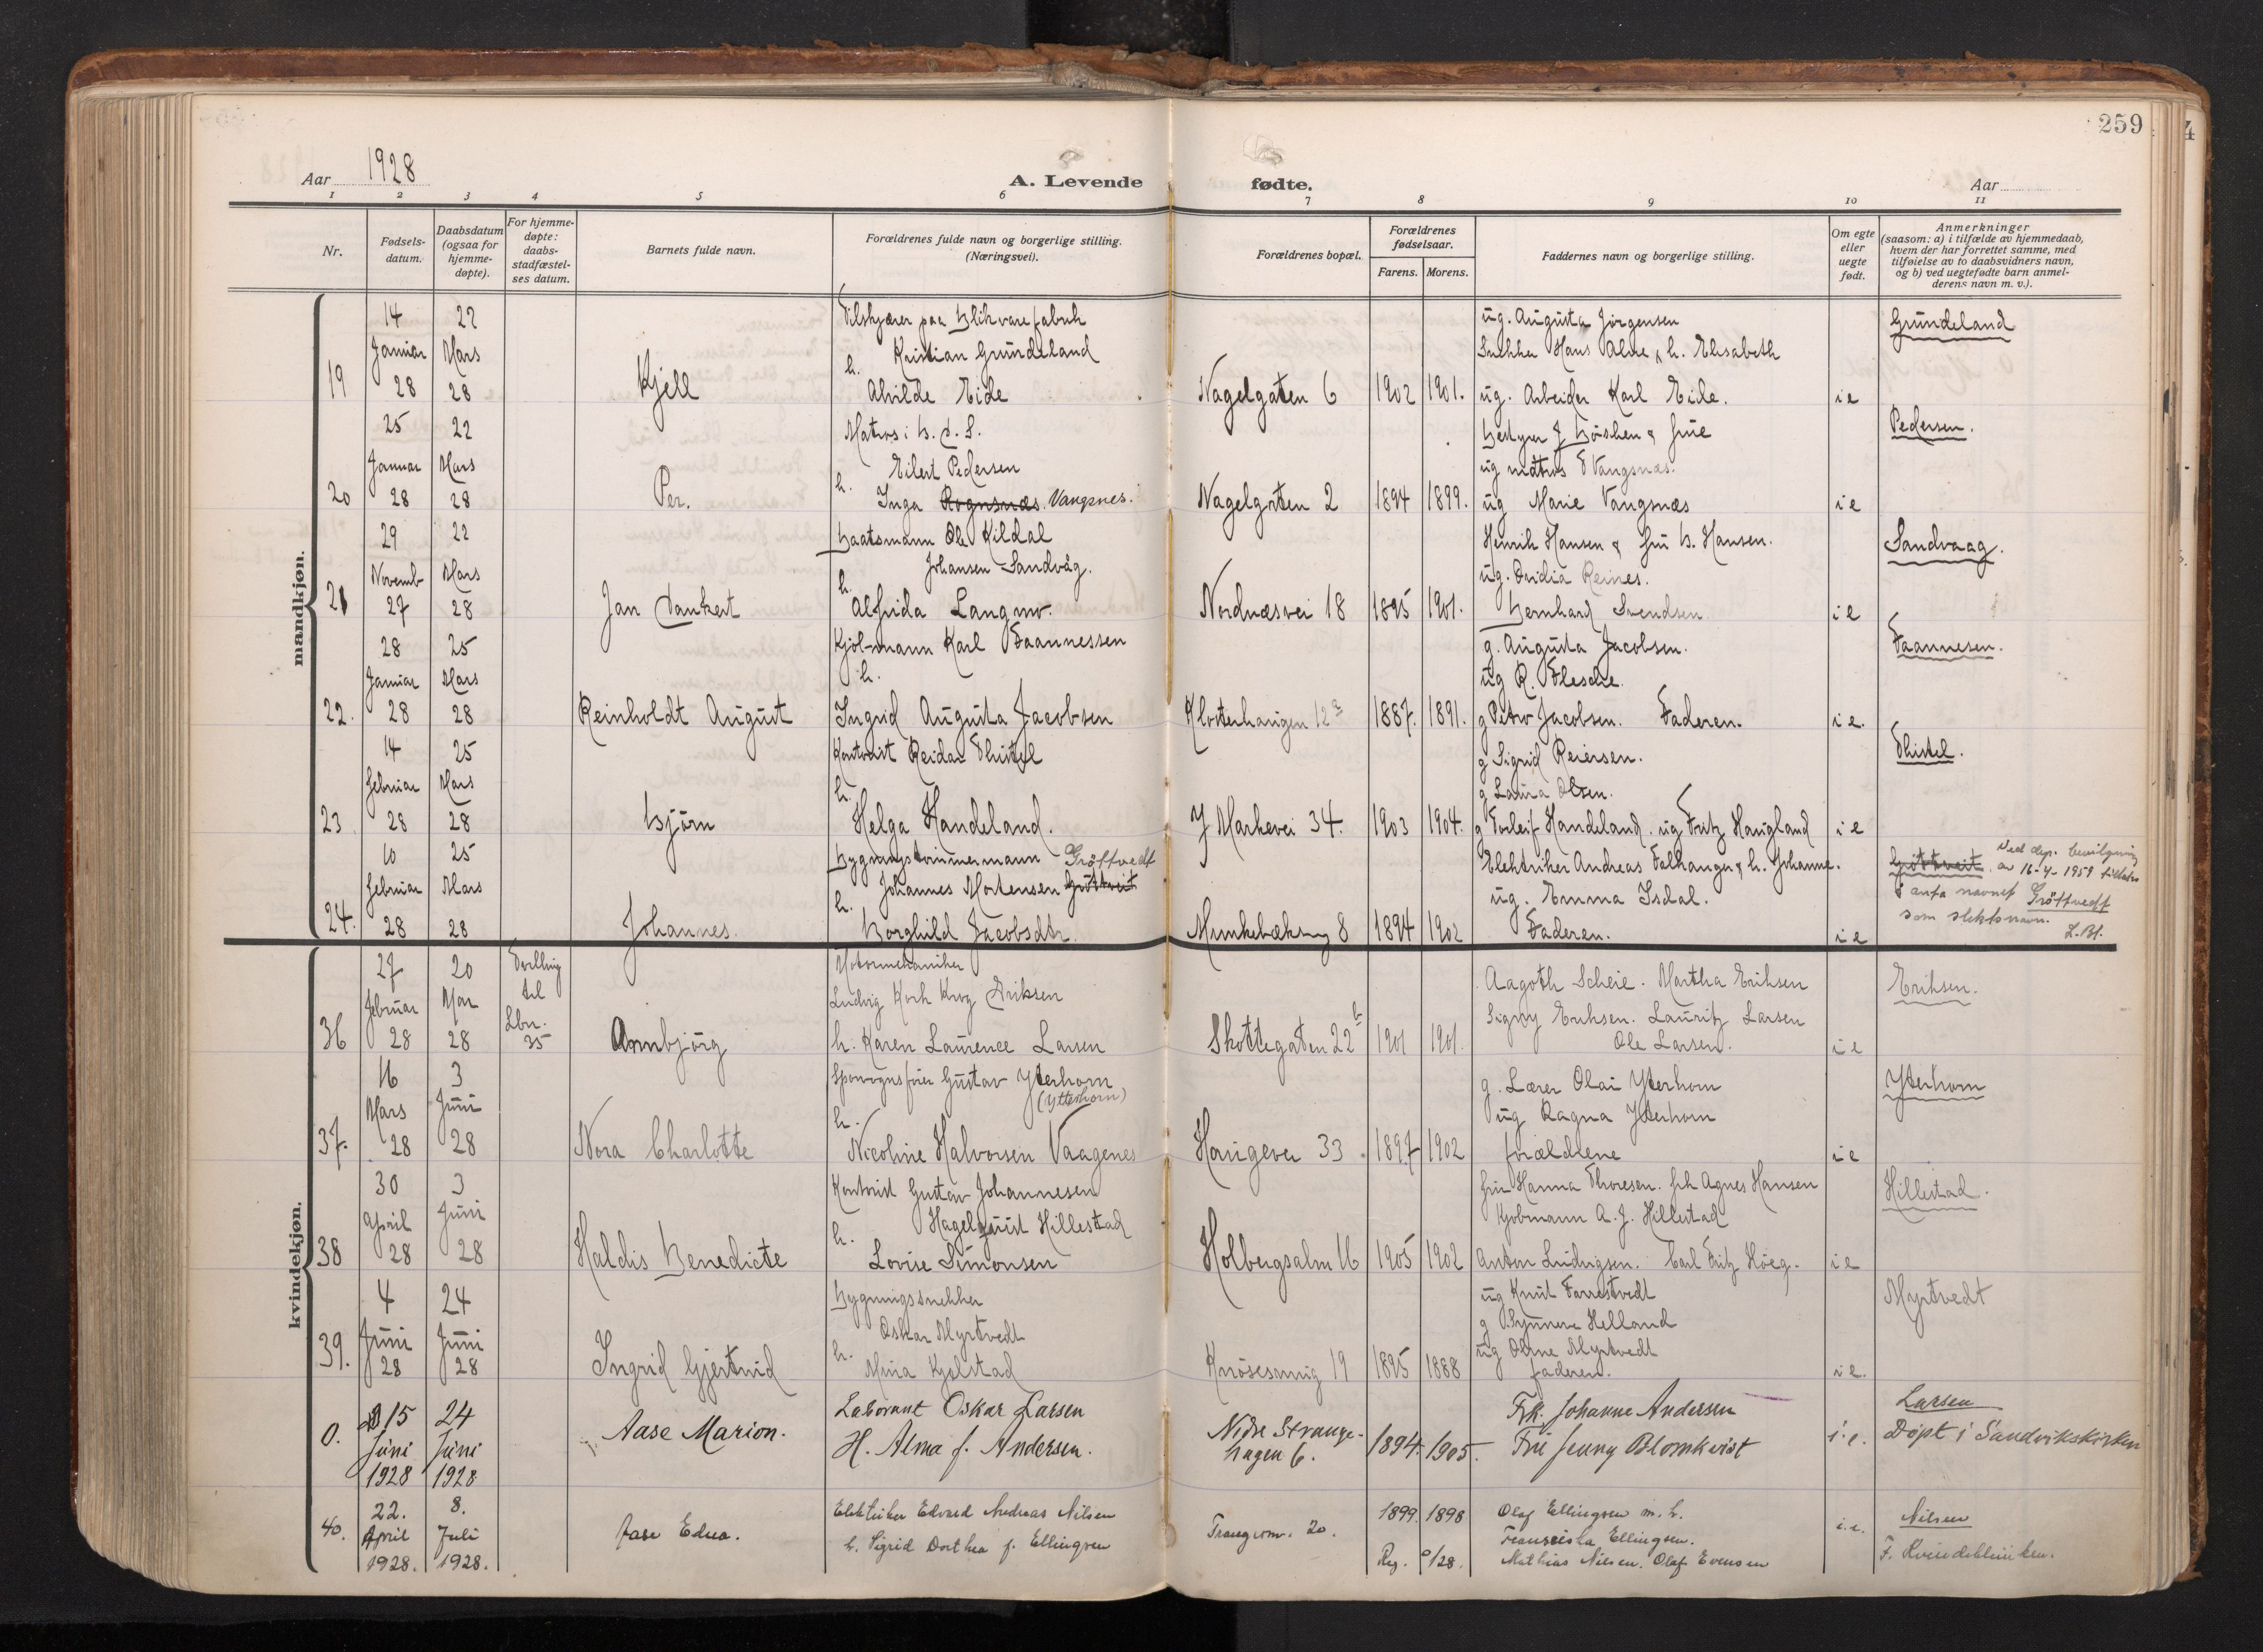 259
Aar 1928
A. Levende fødte.
Aar
1 2 3 4 5 6 7 8 9 10 11
Nr.
Fødsels-
datum.
Daabsdatum
(ogsaa for
hjemme-
døpte).
For hjemme-
døpte:
daabs-
stadfæstel-
ses datum.
Barnets fulde navn.
Forældrenes fulde navn og borgerlige stilling.
(Næringsvei).
Forældrenes bopæl.
Forældrenes
fødselsaar.
Farens. Morens.
Faddernes navn og borgerlige stilling.
Om egte
eller
uegte
født.
Anmerkninger
(saasom: a) i tilfælde av hjemmedaab,
hvem der har forrettet samme, med
tilføielse av to daabsvidners navn,
og b) ved uegtefødte barn anmel-
derens navn m. v.).
mandkjøn.
14 22 Tilskjærer paa Blikvarefabrik ug. Augusta Jørgensen Grundeland
Januar Mars h. Kristian Grundeland Snekker Hans Alme & h. Elisabeth
19 28 28 Kjell Alvilde Eide Nagelgaten 6 1902 1901. ug. Arbeider Karl Eide. i e
25 22 Matros i B. d. S. Bestyrer J. & frue Pedersen.
Januar Mars h. Eilert Pedersen ug matros T Vangsnæs.
20 28 28 Per. Inga Rognsnæs. Vangsnes. Nagelgaten 2 1894 1899. ug Marie Vangsnæs i e
29 22 Baatsmann Ole Kildal Henrik Hansen & fru B. Hansen. Sandvaag.
Novemb Mars h. Johansen Sandvåg. ug. Ovidia Reines.
21 27 28 Jan Dankert Alfrida Langmo. Nordnæsvei 18 1895 1901. Bernhard Svendsen i e
28 25 Kjöl-mann Karl Faannessen g. Augusta Jacobsen. Faannesen.
Januar Mars h. ug R. Flesche.
22. 28 28 Reinholdt August Ingrid Augusta Jacobsen Klosterhaugen 12a 1887. 1891. g Petro Jacobsen. Faderen. i e.
14 25 Kontorist Reidar Thistel g Sigrid Reiersen. Thistel.
Februar Mars h. g Laura Olsen.
23 28 28 Bjørn Helga Handeland. Y Markevei 34. 1903 1904. g Torleif Handeland. ug Fritz Haugland i e
10 25 Bygningstømmermann Gröftvedt Elektriker Andreas Falkanger & h. Johanne. Gröttveit. Ved dep. bevilgning
Februar Mars h. Johannes Mortensen Gröttveit ug. Emma Isdal. av 16-4-1959 tillates
å anta navnet Gröftvedt
24. 28 28 Johannes. Borghild Jacobsdtr. Munkebæksmg 8 1894 1902 Faderen. i e som slektsnavn.
L.Bl.
kvindekjøn.
27 20 Tvilling Motormekaniker Aagoth Scheie. Martha Eriksen Eriksen.
Februar Mar til Ludvig Koch Krog Eriksen Signy Eriksen. Lauritz Larsen
36 28 28 Lbn. 35 Annbjörg h. Karen Laurence Larsen Skottegaten 22b 1901 1901. Ole Larsen. i e
16 3 Sporvognsfører Gustav Ytterhorn g. Lærer Olai Ytterhorn Ytterhorn
Mars Juni h. (Ytterhorn) ug Ragna Ytterhorn
37. 28 28 Nora Charlotte Nicoline Halvorsen Vaagenes Haugevei 33. 1897 1902 forældrene i e
30 3 Kontorist Gustav Johannesen fru Hanna Thoresen. frk Agnes Hansen Hillestad.
April Juni h. Hagelquist Hillestad Kjobmann A. J. Hillestad
38 28 28 Haldis Benedicte Lovise Simonsen Holbergsalm 16 1905 1902 Anton Ludvigsen. Carl Fritz Høeg. i e
4 24 Bygningssnekker ug Knut Forrestvedt Myrtvedt
Juni Juni h. Oskar Myrtvedt g Synneve Helland
39. 28 28 Ingrid Gjertrud Mina Kjolstad Knösesmug 19 1895 1888 ug Oline Myrtvedt
faderen. i e.
0. 15 24 Aase Marion. Laborant Oskar Larsen Nedre Strange- Frk. Johanne Andersen Larsen
Juni Juni H. Alma f. Andersen. hagen 6. 1894. 1905. Fru Jenny Blomkvist i. e. Døpt i Sandvikskirken
1928 1928
40. 22. 8. Aase Edna. Elektriker Edvard Andreas Nilsen 1899. 1898 Olaf Ellingsen m. h. Nilsen
April Juli h. Sigrid Dorthea f. Ellingsen Trangesm. 20. Fransciska Ellingsen. i. e. F. Kvindeklinikken.
1928. 1928. Reg. 9/28. Mathias Nilsen. Olaf Evensen